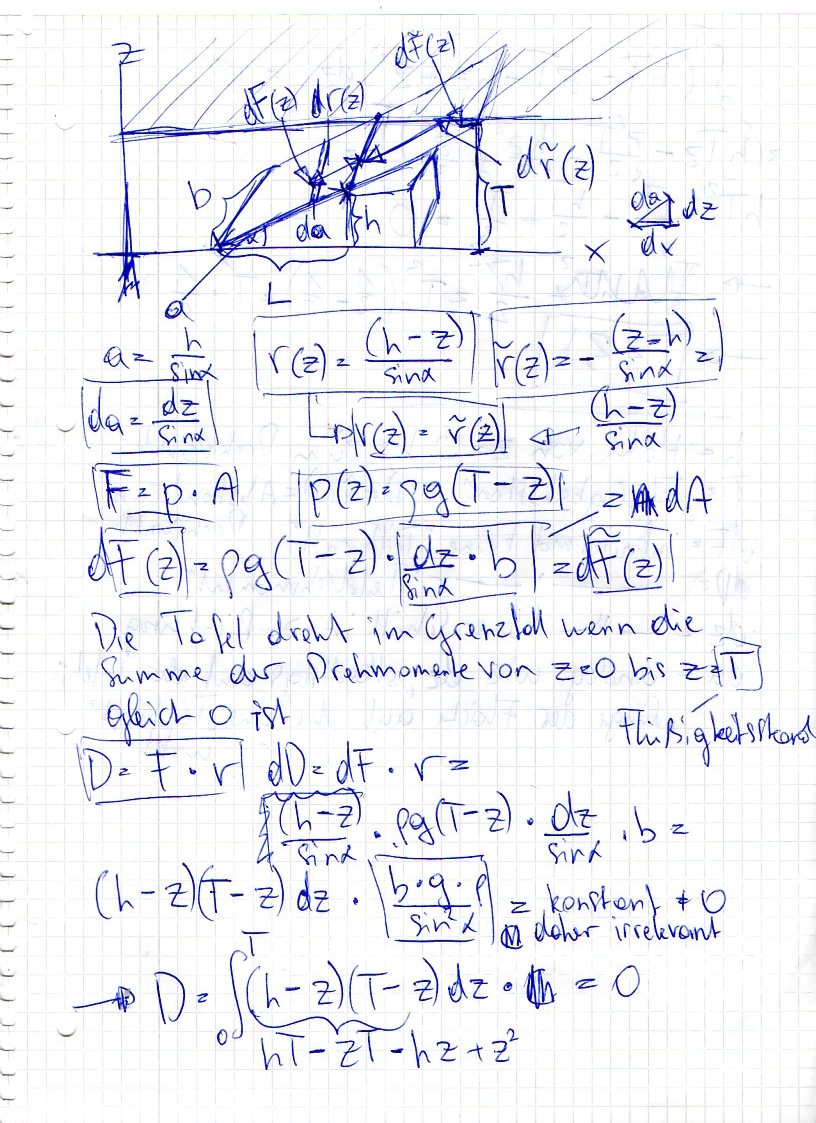 z
dF̃(z)
dF(z) dr(z)
dr̃(z)
b
T
da
h
α
L
a
x
da dz
dx
a = h/sinα
r(z) = (h-z)/sinα
r̃(z) = - (z-h)/sinα =
da = dz/sinα
r(z) = r̃(z) ← (h-z)/sinα
F = p · A
p(z) = ρg(T-z)
= dA
dF(z) = ρg(T-z) · dz/sinα · b = dF̃(z)
Die Tafel dreht im Grenzfall wenn die
Summe der Drehmomente von z=0 bis z=T
gleich 0 ist
Flüßigkeitsstand
D = F · r dD = dF · r =
(h-z)/sinα · ρg(T-z) · dz/sinα · b =
(h-z)(T-z) dz · b·g·ρ/sin²α = konstant ≠ 0
daher irrelevant
→ D = ∫₀ᵀ (h-z)(T-z) dz · = 0
hT - zT - hz + z²